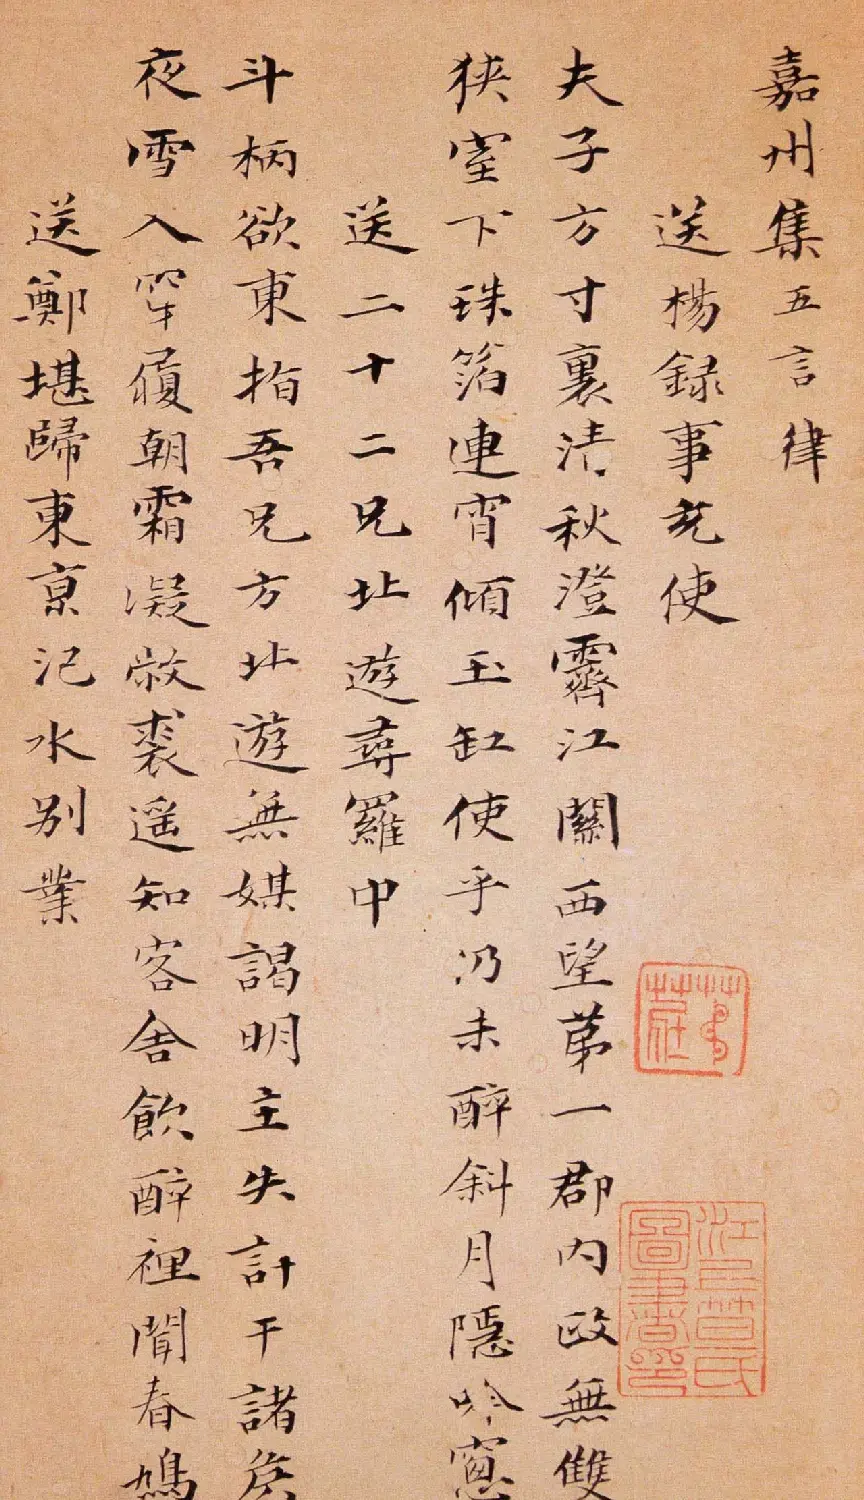 嘉州集五言律
送楊録事充使
夫子方寸裏清秋澄霽江關西望第一郡内政無雙
狹室下珠箔連宵傾玉缸使乎仍未醉斜月隱吟窻
送二十二兄北遊尋羅中
斗柄欲東指吾兄方北遊無媒謁明主失計干諸侯
夜雪入穿履朝霜凝敝裘遥知客舍飲醉裡聞春鳩
送鄭堪歸東京汜水別業